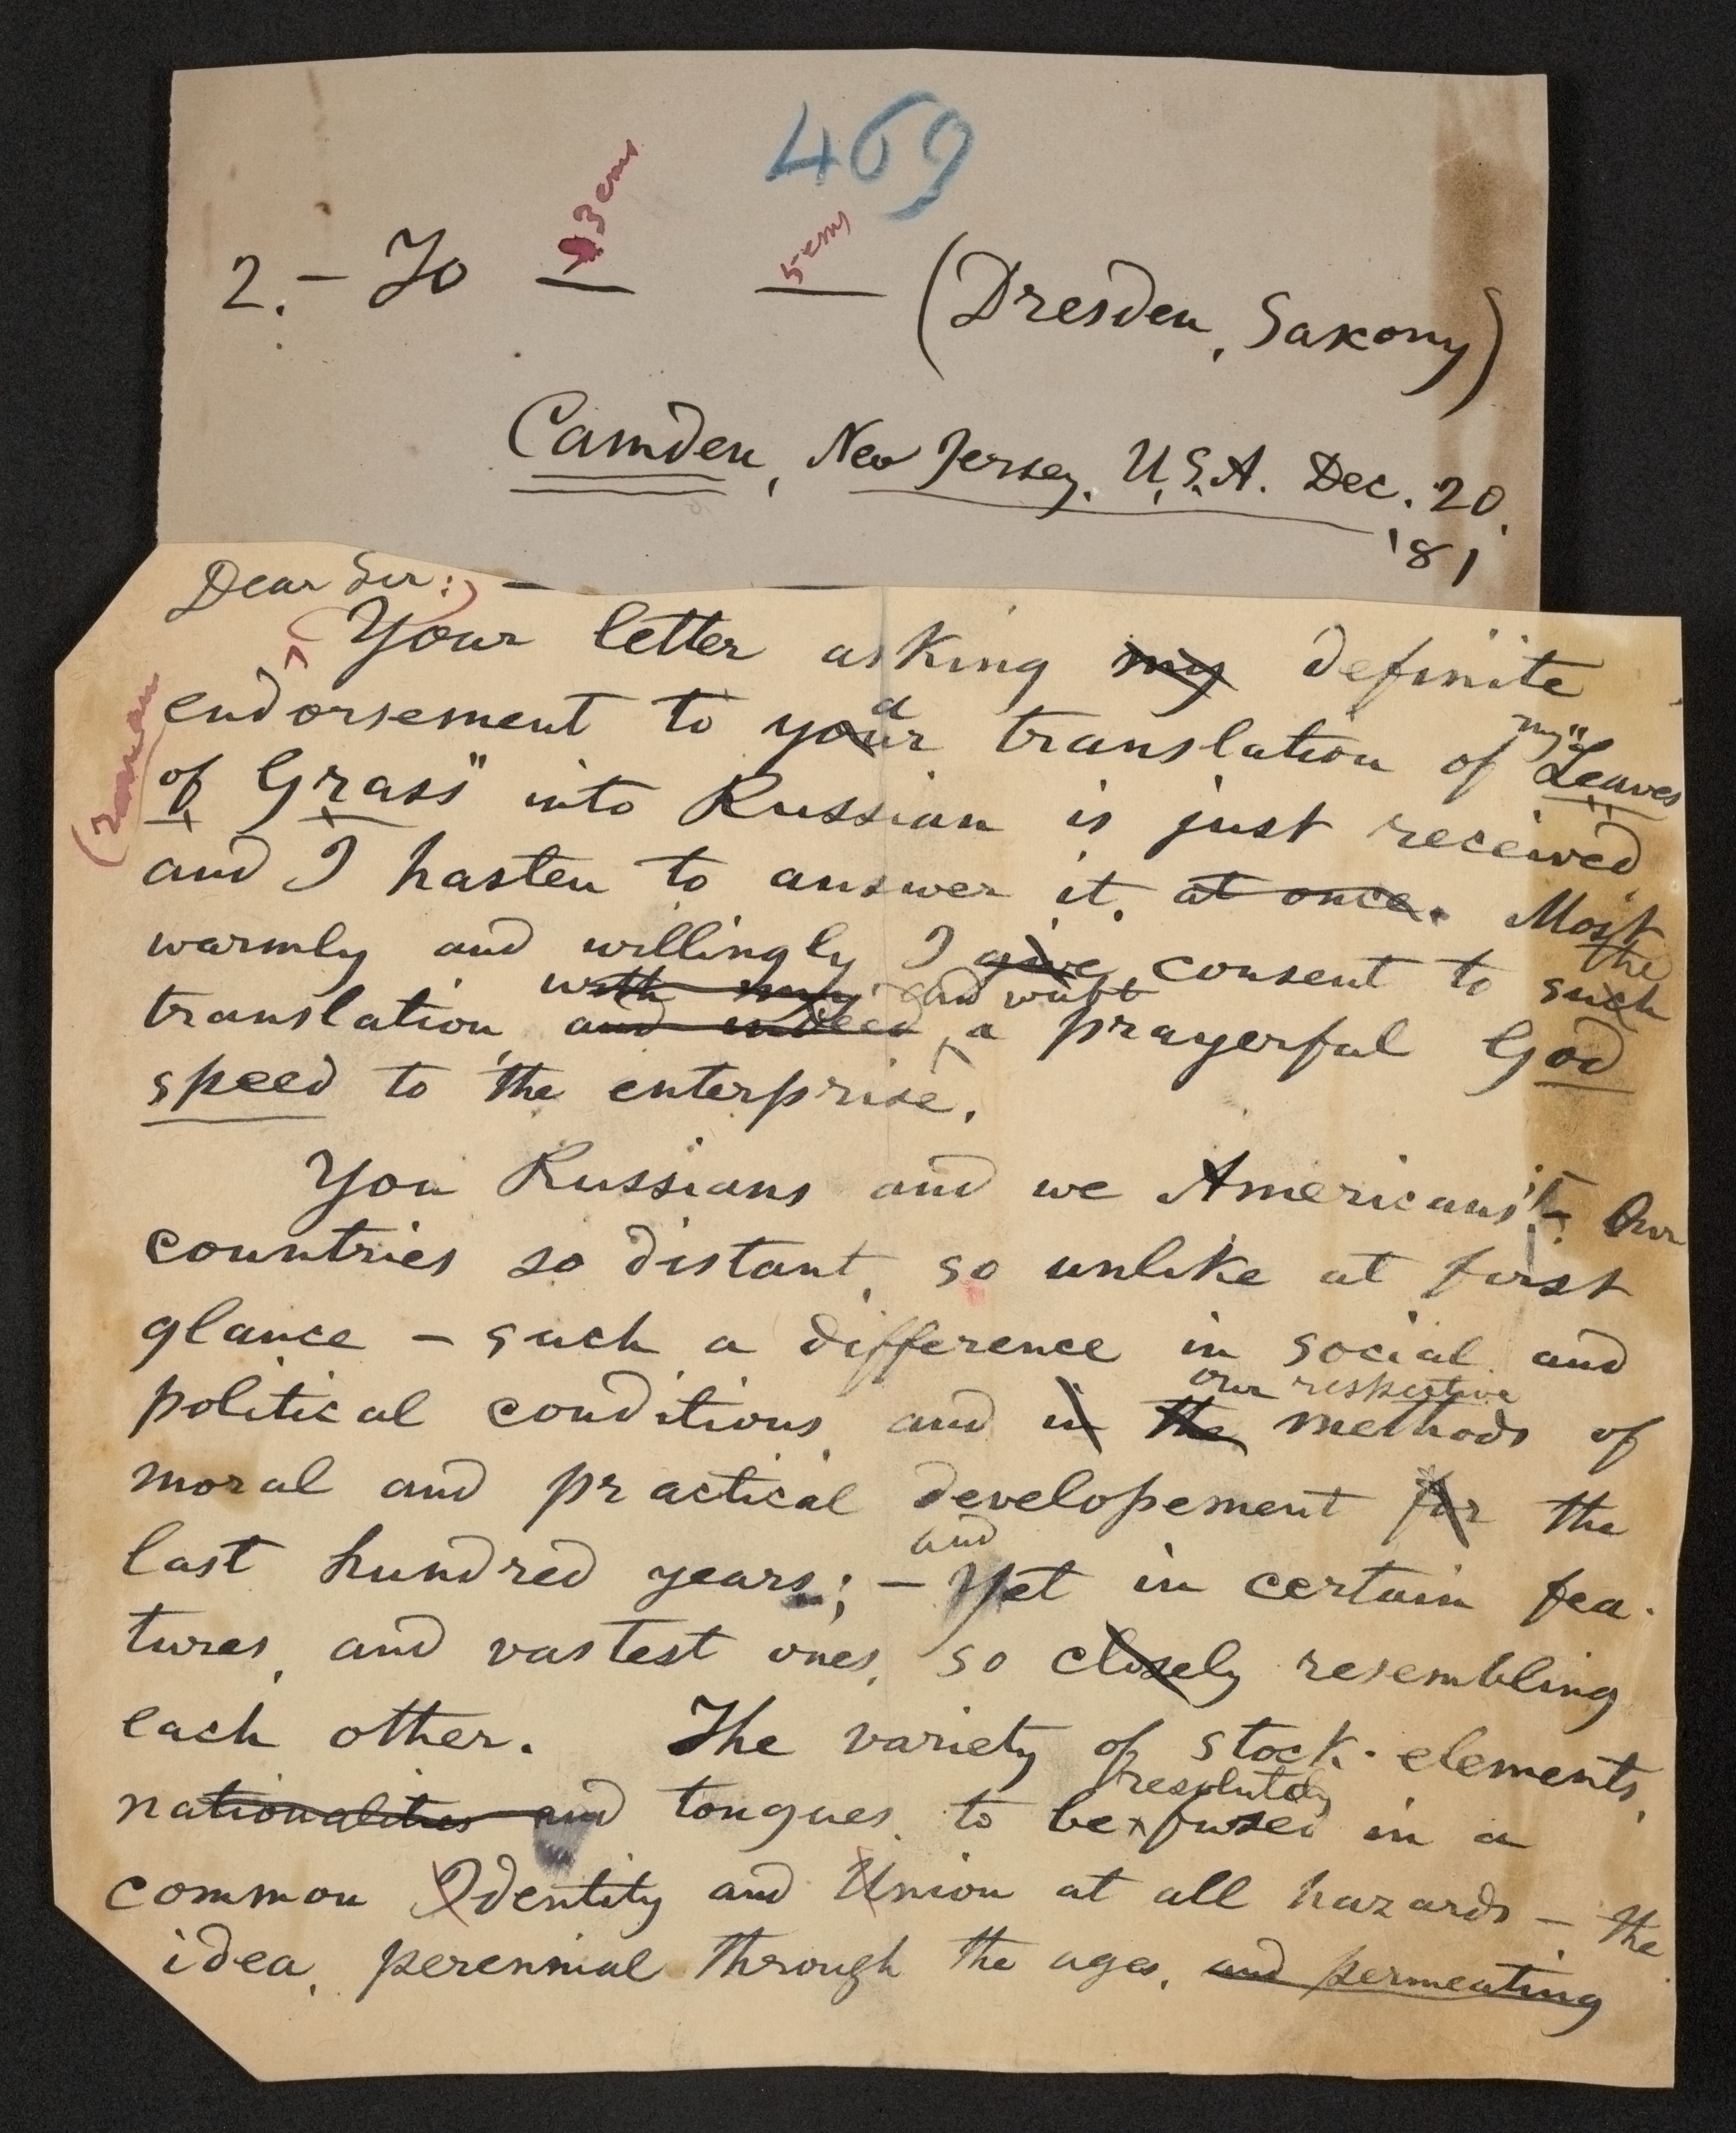 469
3 ems
5 ems
2. – To — — (Dresden, Saxony)
Camden, New Jersey, U.S.A. Dec. 20,
'81
Dear Sir: –
Your letter asking my definite
a
endorsement to your translation of my "Leaves
(roman
of Grass" into Russian is just received,
and I hasten to answer it. at once. Most
warmly and willingly I give consent to such
the
with my and waft
translation and indeed a prayerful God
speed to the enterprise.
You Russians and we Americans! – Our
countries so distant, so unlike at first
glance – such a difference in social and
our respective
political conditions, and in the methods of
moral and practical developement for the
last hundred years; – and yet in certain fea-
tures, and vastest ones, so closely resembling
each other. The variety of stock-elements,
resolutely
nationalities and tongues, to be fused in a
common Identity and Union at all hazards – the
idea, perennial through the ages, and permeating